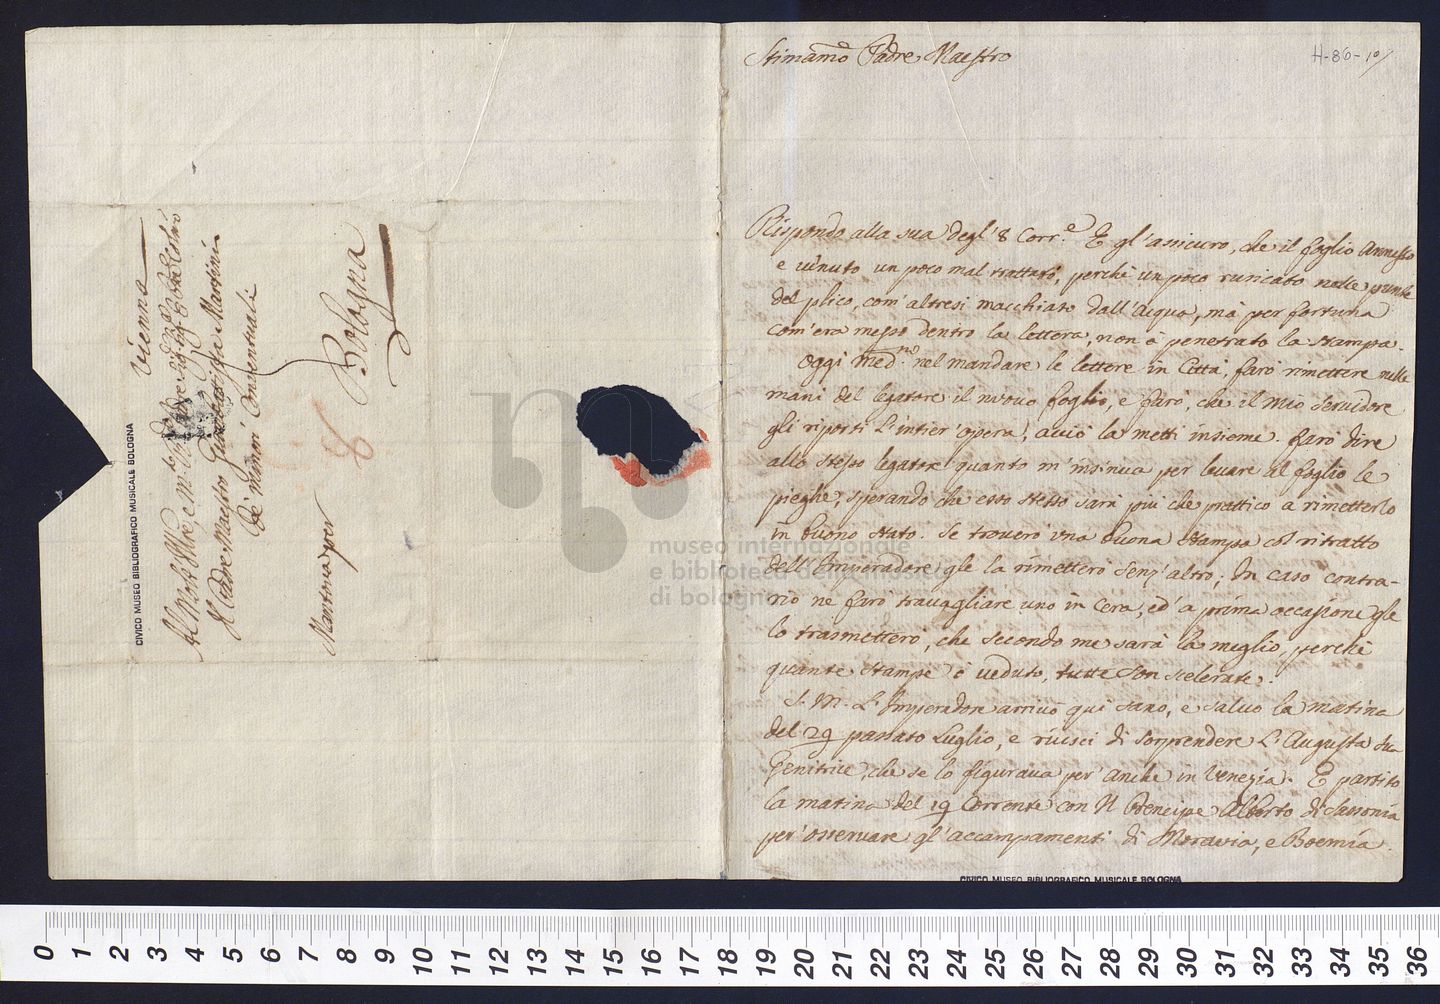 Vienna
Al Molto
Il Padre Maestro Giambattista Martini
de' minori Conventuali
Mantova per
Bologna
8
CIVICO MUSEO BIBLIOGRAFICO MUSICALE BOLOGNA
museo internazionale
e biblioteca della musica
di bologna
H-86-101
Stimamo Padre Maestro
Rispondo alla sua degl' 8 Corr.e E gl'assicuro, che il foglio annesso
e venuto un poco mal trattato, perche un poco nelle
del plico, com' altresi macchiato dall'acqua, mà per fortuna
com'era messo dentro la lettera, non à penetrato la stampa.
Oggi Med.mo nel mandare le lettere in Città, farò rimettere nelle
mani del legatore il nuovo foglio, e farò, che il mio servidore
gli riporti l'intier'opera, acciò la metti insieme. farò dire
allo stesso legatore quanto m'insinua per levare al foglio le
pieghe, sperando che esso stesso sarà più che prattico a rimetterlo
in buono stato. Se troverò una buona stampa col ritratto
dell'Imperadore gle la rimetterò senz'altro; In caso contra-
rio ne farò travagliare uno in cera, ed'a prima occasione gle
lo trasmetterò, che secondo me sarà la meglio, perche
quante stampe ò veduto, tutte son scelerate.
S. M. L'Imperadore arrivò qui sano, e salvo la matina
del 29 passato Luglio, e riuscì di sorprendere L'Augusta sua
Genitrice, che se lo figurava per anche in Venezia. E partito
la matina del 19 Corrente con Il Prencipe Alberto di Sassonia
per'osservare gl'accampamenti di Moravia, e Boemia.
CIVICO MUSEO BIBLIOGRAFICO MUSICALE BOLOGNA
0 1 2 3 4 5 6 7 8 9 10 11 12 13 14 15 16 17 18 19 20 21 22 23 24 25 26 27 28 29 30 31 32 33 34 35 36